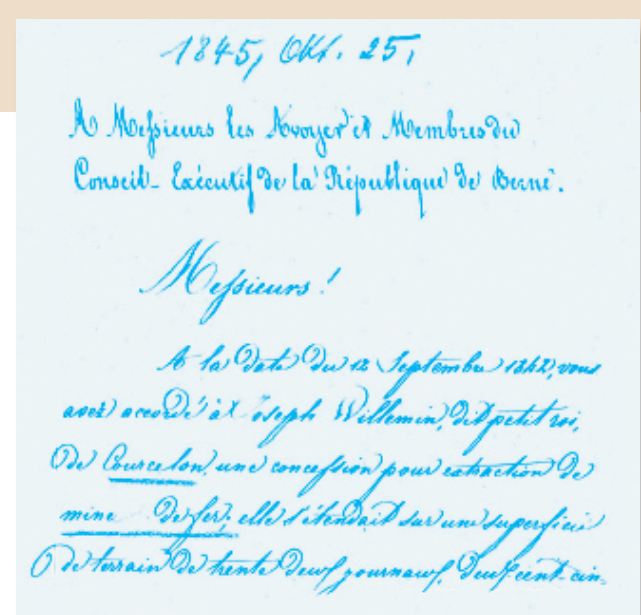 1845, Okt. 25,
A Messieurs les Avoyer et Membres du
Conseil-Exécutif de la République de Berne.
Messieurs !
A la date du 12 Septembre 1842, vous
avez accordé à Joseph Willemin, dit petit roi,
de Courcelon, une concession pour extraction de
mine de fer; elle s'étendait sur une superficie
de terrain de trente deux journaux, deux cent cin-